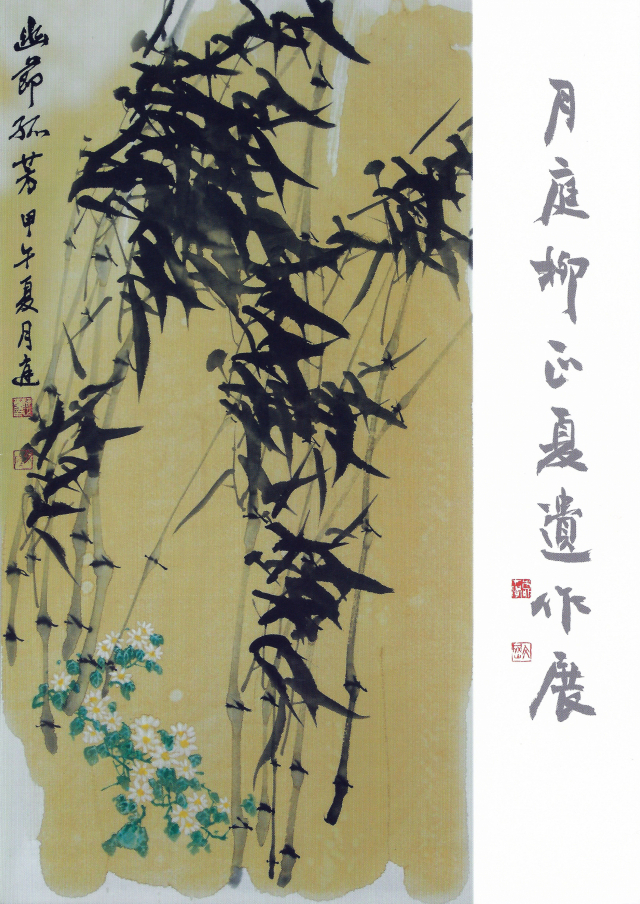 月庭柳正夏遺作展
幽節孤芳甲午夏月庭